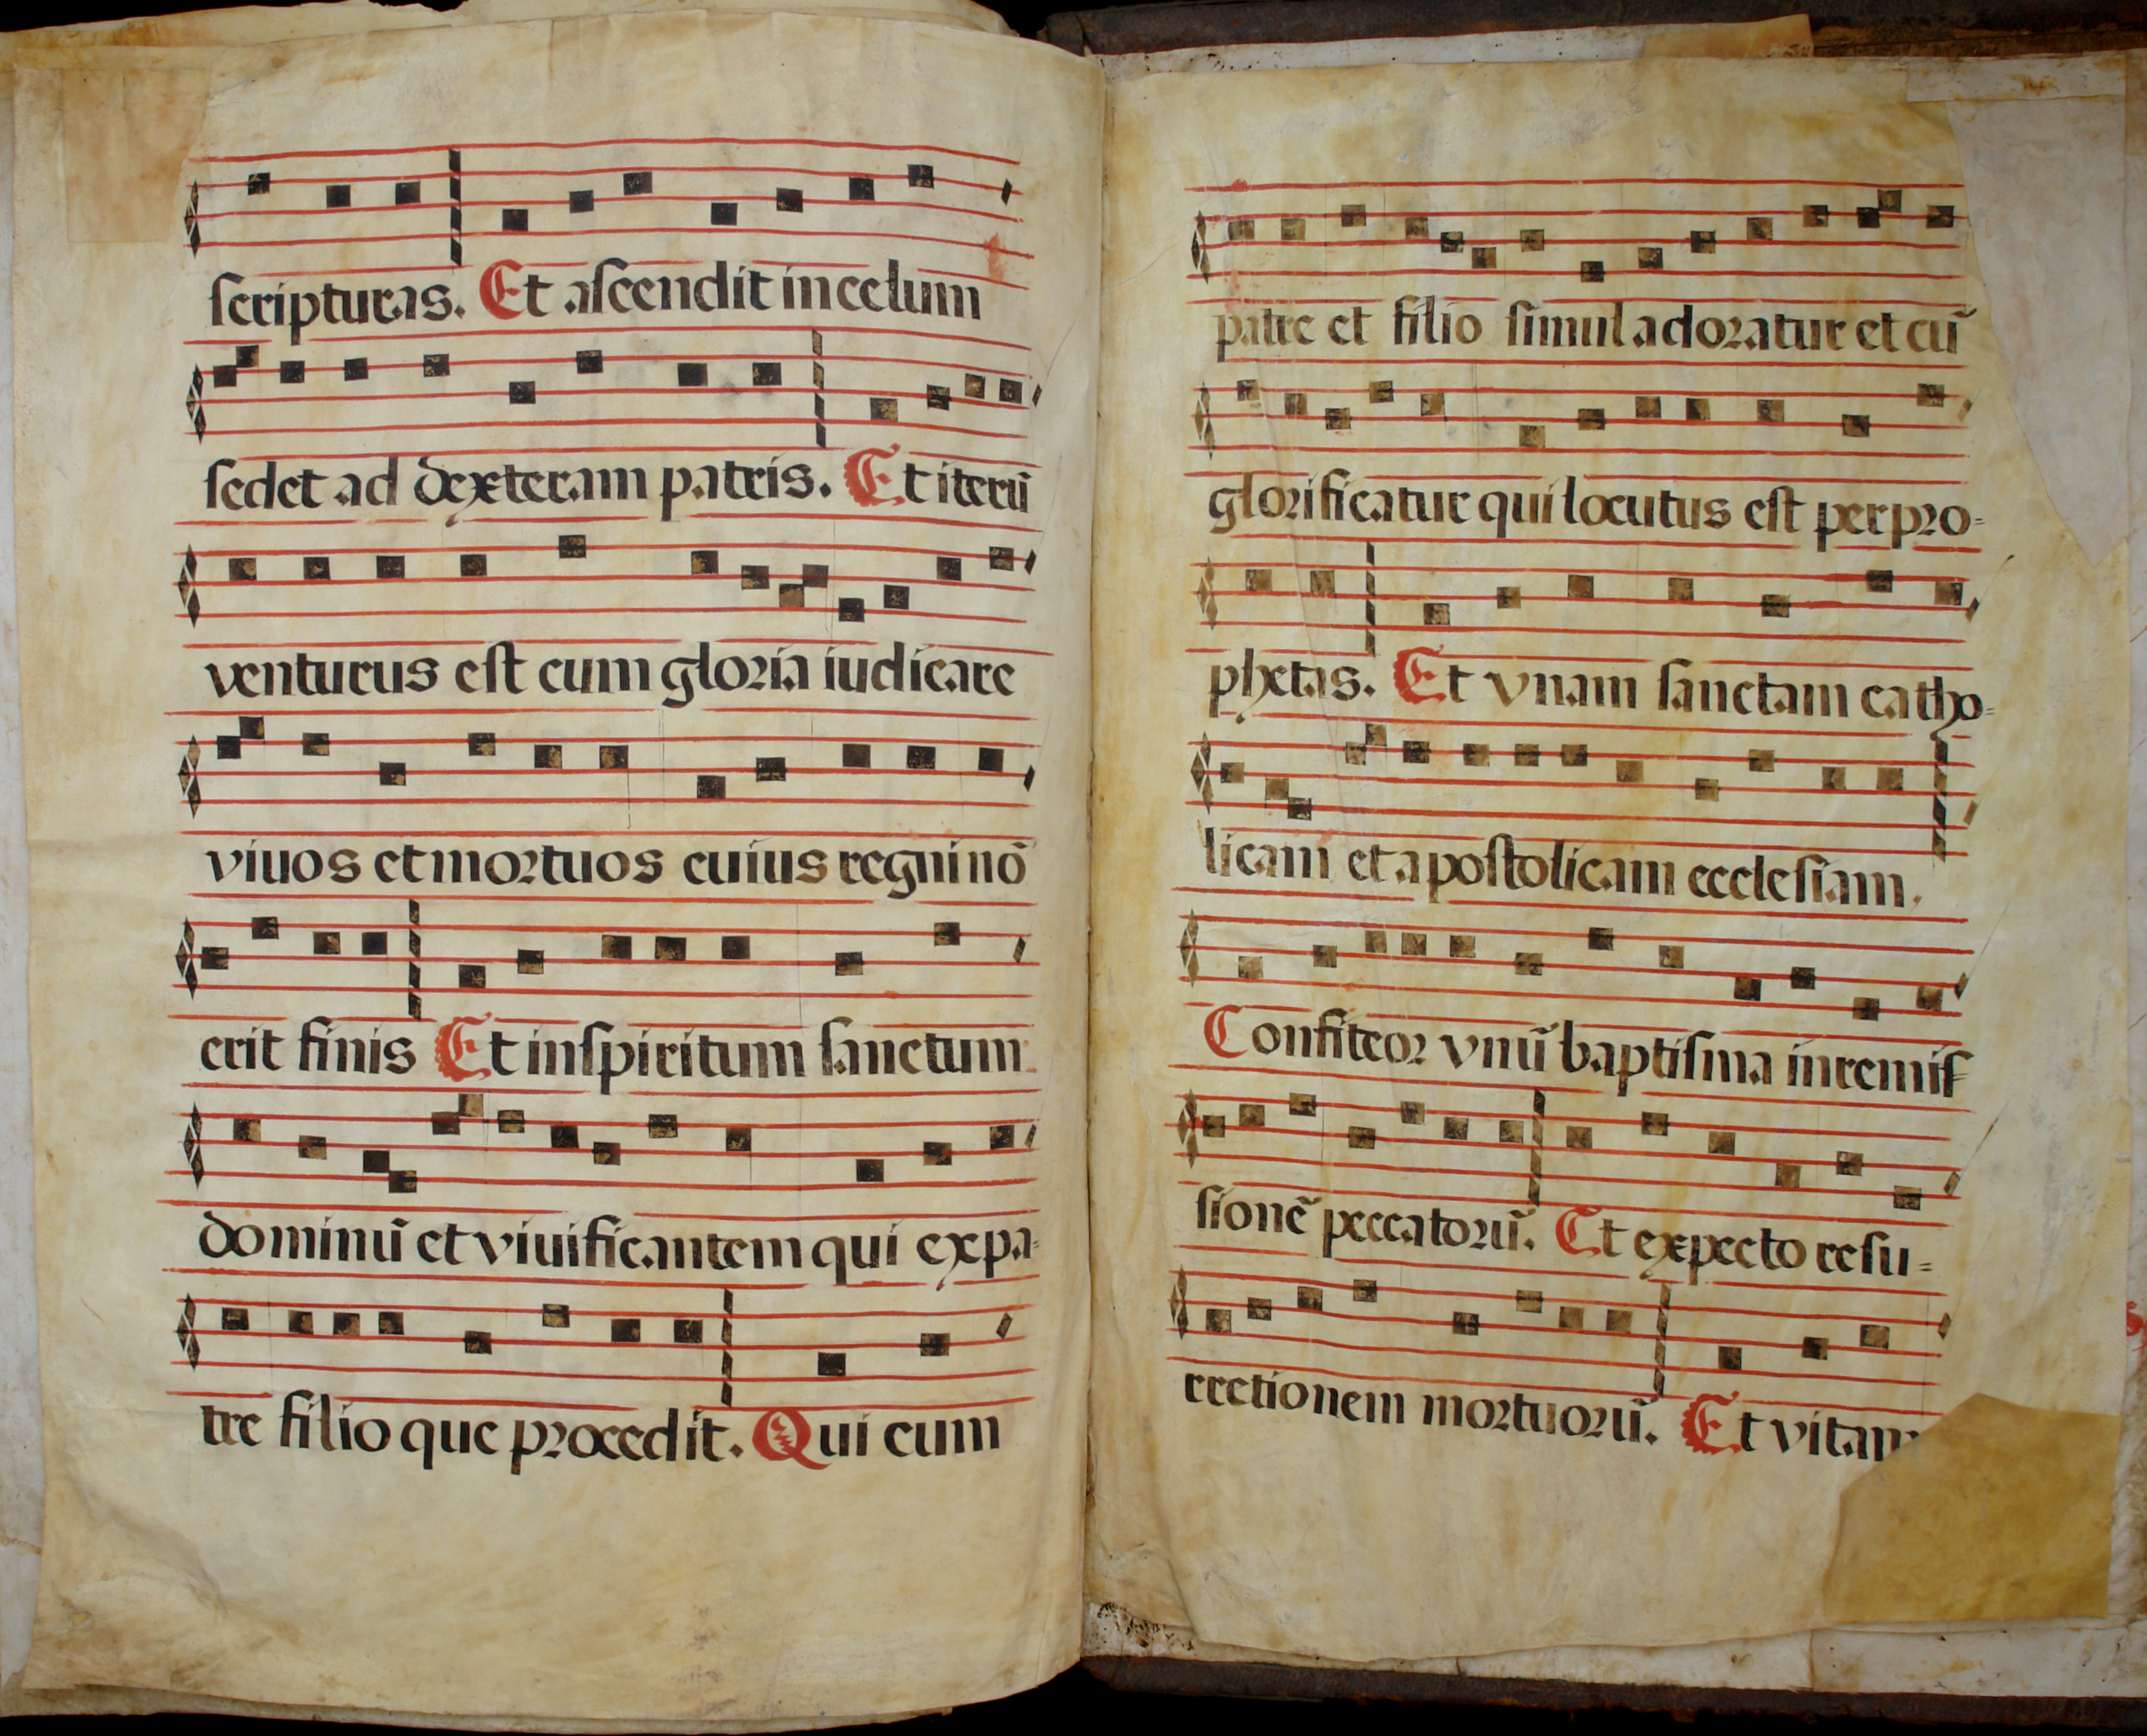 scripturas. Et ascendit in celum
sedet ad dexteram patris. Et iterũ
venturus est cum gloria iudicare
viuos et mortuos cuius regni nõ
erit finis Et in spiritum sanctum
dominũ et viuificantem qui ex pa-
tre filio que procedit. Qui cum
patre et filio simul adoratur et cũ
glorificatur qui locutus est per pro-
phetas. Et vnam sanctam catho-
licam et apostolicam ecclesiam.
Confiteor vnũ baptisma in remis-
sionẽ peccatorũ. Et expecto resu-
rrectionem mortuorũ. Et vitam